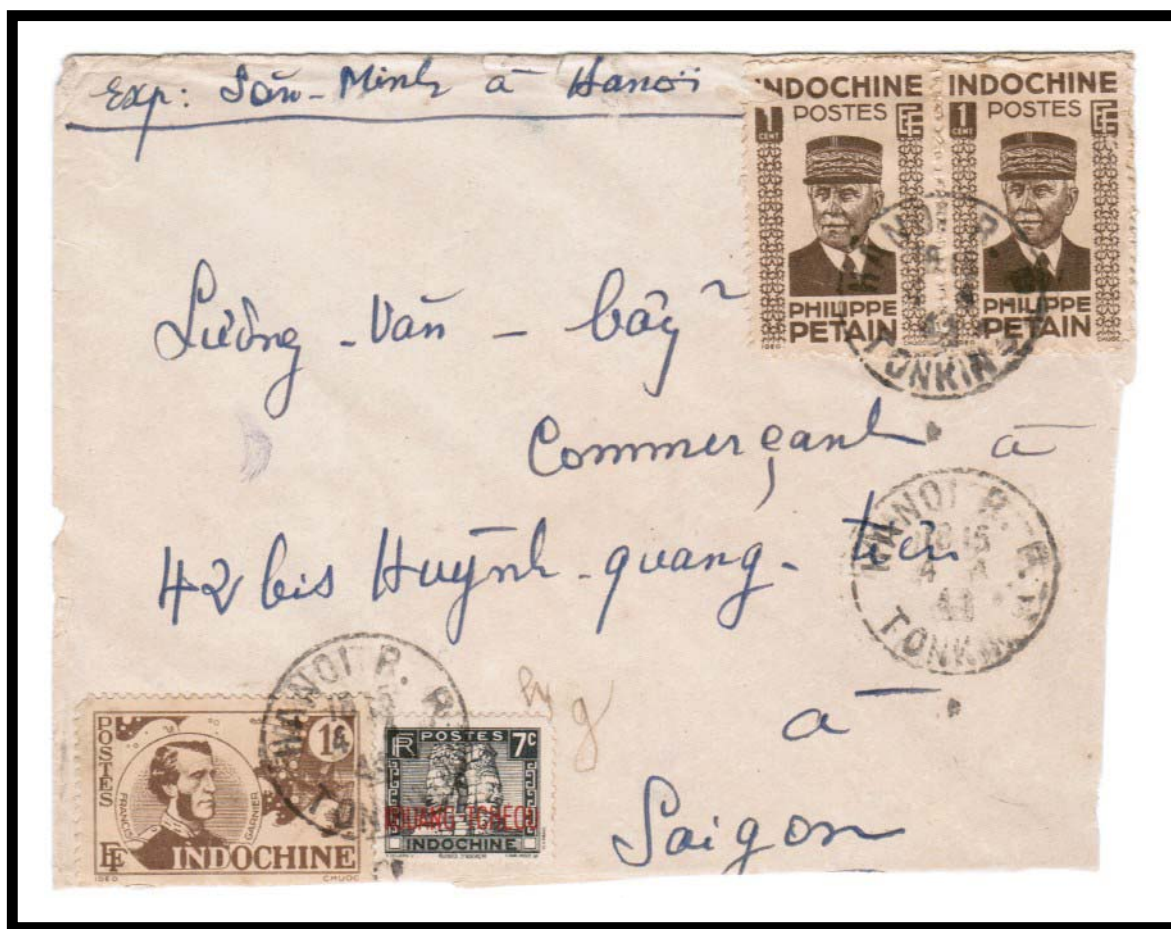 Exp: Sần-Minh à Hanoi
INDOCHINE
POSTES
1
CENT
EF
PHILIPPE
PETAIN
INDOCHINE
POSTES
1
CENT
EF
PHILIPPE
PETAIN
HANOI R.
TONKIN
Lường-Văn-bảy
Commerçant à
42 bis Huỳnh-quang-tiên
à
Saigon
HANOI R. P.
18 15
TONKIN
HANOI R. P.
POSTES
1c
FRANCIS
GARNIER
EF
INDOCHINE
IDEO
CHUOC
RF
POSTES
7c
KOUANG-TCHEOU
INDOCHINE